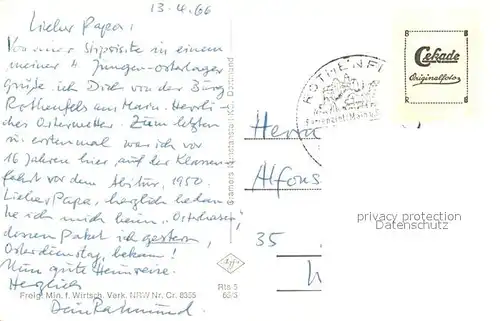 13.4.66
Lieber Papa!
Von einer Stippvisite in einem
meiner 4 Jungen-Osterlager
grüße ich Dich von der Burg
Rothenfels am Main. Herrli-
ches Osterwetter. Zum letzten
u. erstenmal war ich vor
16 Jahren hier, auf der Klassen-
fahrt vor dem Abitur, 1950.
Lieber Papa, herzlich bedan-
ke ich mich beim "Osterhasen",
dessen Paket ich gestern,
Osterdienstag, bekam!
Nun gute Heimreise.
Herzlich
Dein Raimund.
Freig. Min. f. Wirtsch. Verk. NRW Nr. Cr. 8355
Cramers Kunstanstalt KG., Dortmund
Agfa
Rts 5
65/3
ROTHENFELS
Cekade
Originalfoto
Herrn
Alfons
35
privacy protection
Datenschutz